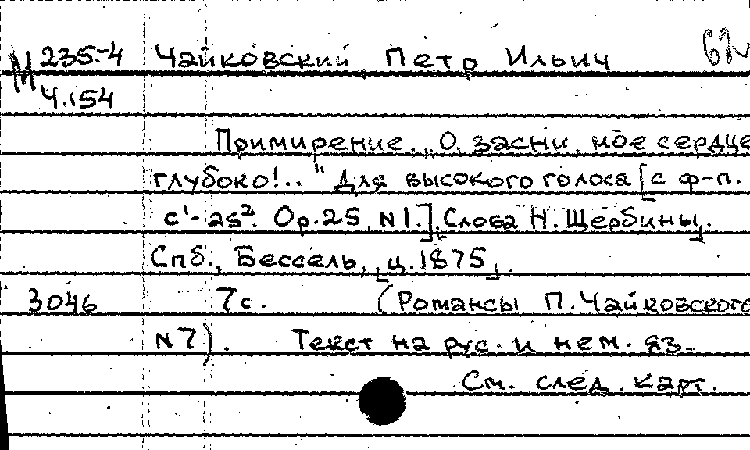 М 235-4 Чайковский Петр Ильич 62
Ч.154
Примирение. „О, засни, мое сердце
глубоко!.." Для высокого голоса [с ф-п.
c¹- as². Op.25, N1.] Слова Н. Щербины.
Спб., Бессель, [ц.1875].
3046 7с. (Романсы П. Чайковского
N7). Текст на рус. и нем. яз.
См. след. карт.